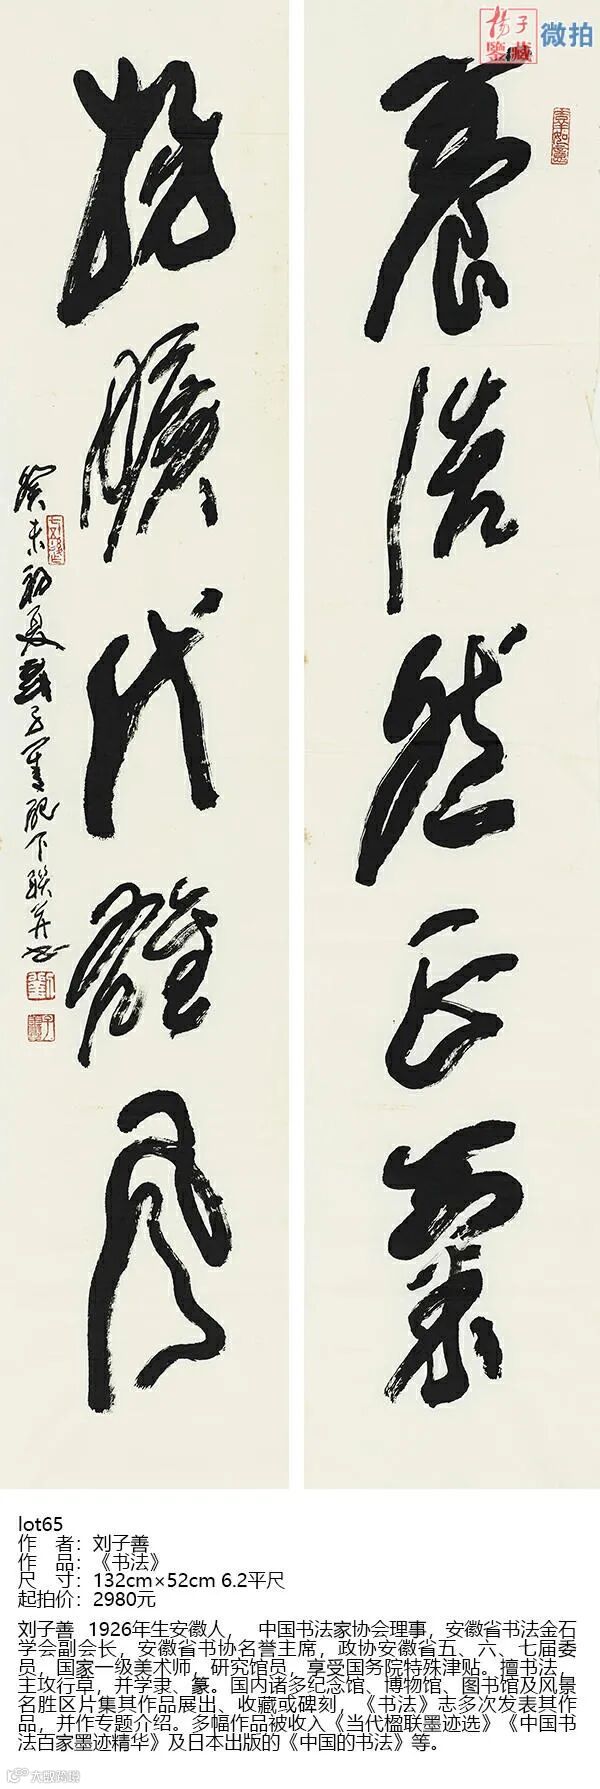 揚子
鑒藏
微拍
養浩然正氣
揚曠代雄風
癸未初夏劉子善配下联并书
lot65
作 者：刘子善
作 品：《书法》
尺 寸：132cm×52cm 6.2平尺
起拍价：2980元
刘子善 1926年生安徽人， 中国书法家协会理事，安徽省书法金石
学会副会长，安徽省书协名誉主席，政协安徽省五、六、七届委
员，国家一级美术师，研究馆员，享受国务院特殊津贴。擅书法，
主攻行草，并学隶、篆。国内诸多纪念馆、博物馆、图书馆及风景
名胜区片集其作品展出、收藏或碑刻，《书法》志多次发表其作
品，并作专题介绍。多幅作品被收入《当代楹联墨迹选》《中国书
法百家墨迹精华》及日本出版的《中国的书法》等。
大欧跨境